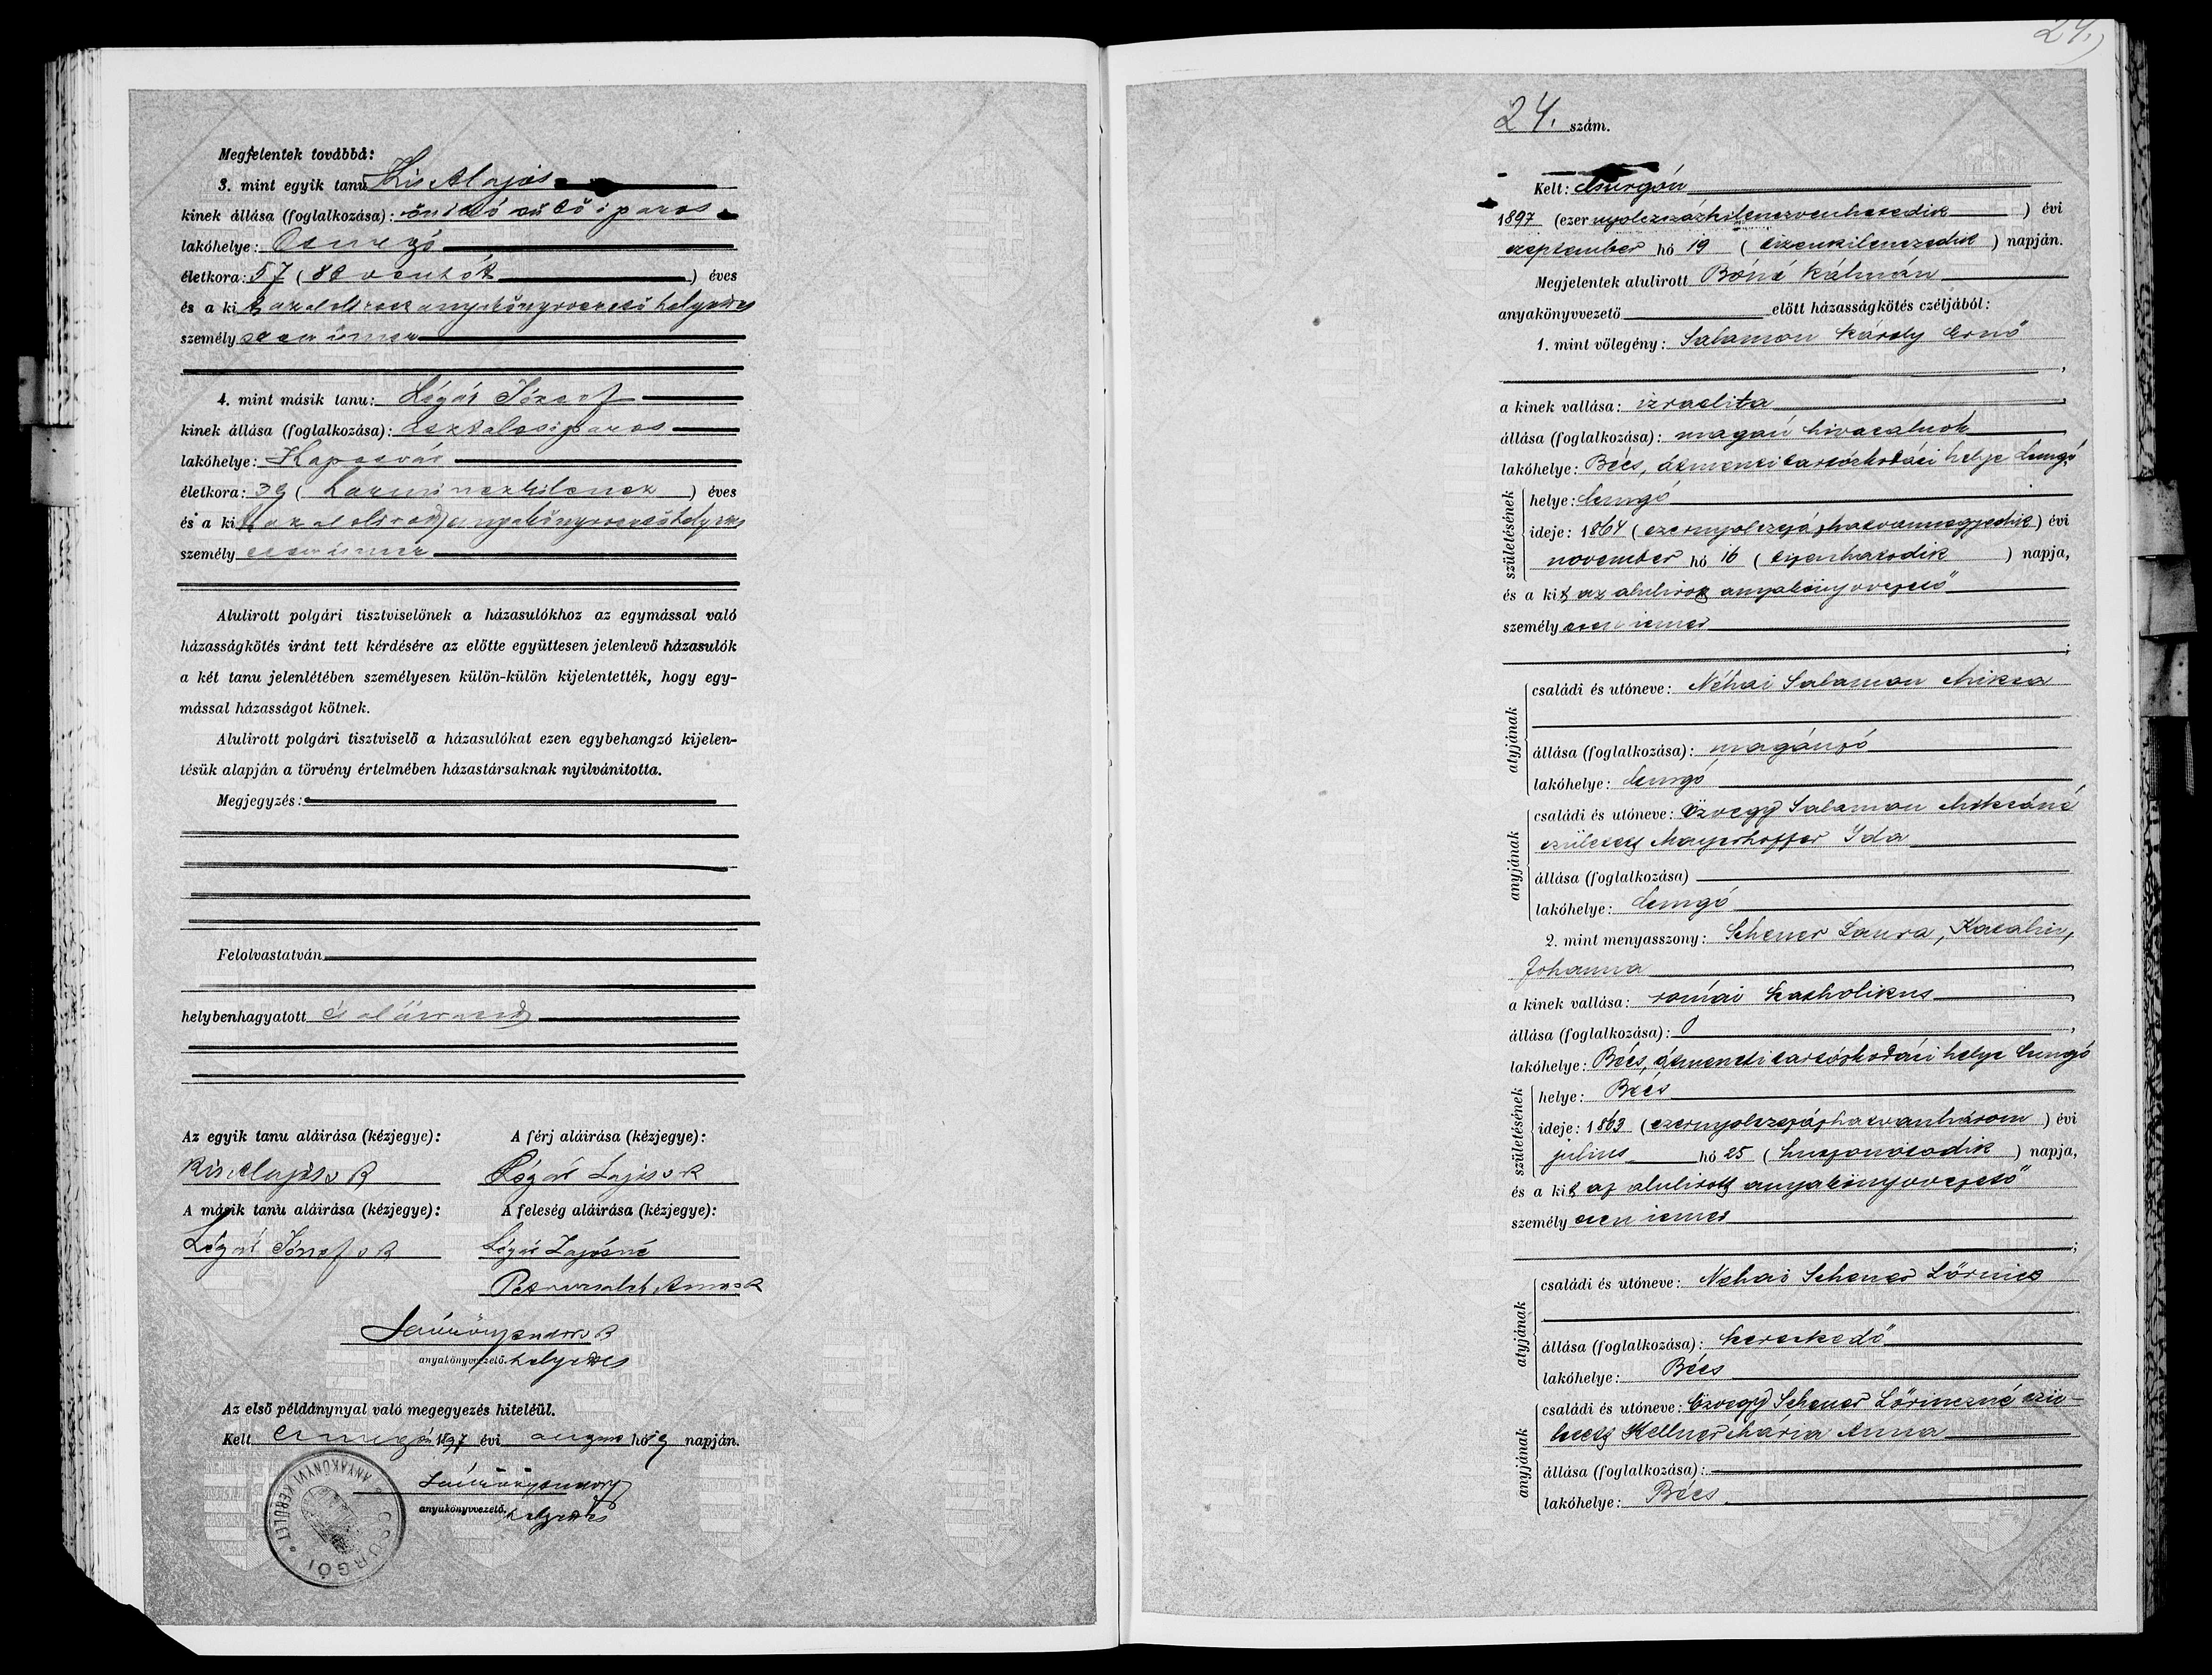 Megjelentek továbbá:
3. mint egyik tanu Kis Alajos
kinek állása (foglalkozása): önálló sütőiparos
lakóhelye: Csurgó
életkora: 57 ( ) éves
és a kit az alulirott anyakönyvvezető helyettes
személyesen ismer
4. mint másik tanu: Légár József
kinek állása (foglalkozása): asztalosiparos
lakóhelye: Kaposvár
életkora: 39 ( harminczkilencz ) éves
és a kit az alulirott anyakönyvvezető helyettes
személyesen ismer
Alulirott polgári tisztviselőnek a házasulókhoz az egymással való
házasságkötés iránt tett kérdésére az előtte együttesen jelenlevő házasulók
a két tanu jelenlétében személyesen külön-külön kijelentették, hogy egy-
mással házasságot kötnek.
Alulirott polgári tisztviselő a házasulókat ezen egybehangzó kijelen-
tésük alapján a törvény értelmében házastársaknak nyilvánitotta.
Megjegyzés:
Felolvastatván
helybenhagyatott és aláiratott
Az egyik tanu aláirása (kézjegye): A férj aláirása (kézjegye):
Kis Alajos sk Légár Lajos sk
A másik tanu aláirása (kézjegye): A feleség aláirása (kézjegye):
Légár József sk Légár Lajosné
Anna sk
anyakönyvvezető. helyettes
Az első példánynyal való megegyezés hiteléül.
Kelt Csurgón 1897 évi aug hó 19 napján.
anyakönyvvezető. helyettes
CSURGÓI ANYAKÖNYVI KERÜLET
24.)
24. szám.
Kelt: Csurgón
1897 (ezer nyolczszázkilenczvenhetedik ) évi
szeptember hó 19 ( tizenkilenczedik ) napján.
Megjelentek alulirott Bóné Kálmán
anyakönyvvezető előtt házasságkötés czéljából:
1. mint vőlegény: Salamon Károly Ernő
a kinek vallása: izraelita
állása (foglalkozása): magán hivatalnok
lakóhelye: Bécs, átmeneti tartózkodási helye Csurgó
születésének
helye: Csurgó
ideje: 1864 ( ezernyolczszázhatvannegyedik ) évi
november hó 16 ( tizenhatodik ) napja,
és a kit az alulirott anyakönyvvezető
személyesen ismer
;
atyjának
családi és utóneve: Néhai Salamon Miksa
állása (foglalkozása): magánzó
lakóhelye: Csurgó
anyjának
családi és utóneve: Özvegy Salamon Miksáné
született Mayerhoffer Ida
állása (foglalkozása)
lakóhelye: Csurgó
2. mint menyasszony: Scheuer Laura, Katalin,
Johanna
a kinek vallása: római katholikus
állása (foglalkozása): 0
lakóhelye: Bécs, átmeneti tartózkodási helye Csurgó
születésének
helye: Bécs
ideje: 1863 ( ezernyolczszázhatvanhárom ) évi
julius hó 25 ( huszonötödik ) napja,
és a kit az alulirott anyakönyvvezető
személyesen ismer
;
atyjának
családi és utóneve: Néhai Scheuer Lőrincz
állása (foglalkozása): kereskedő
lakóhelye: Bécs
anyjának
családi és utóneve: Özvegy Scheuer Lőrinczné szü-
letett Kellner Mária Anna
állása (foglalkozása):
lakóhelye: Bécs